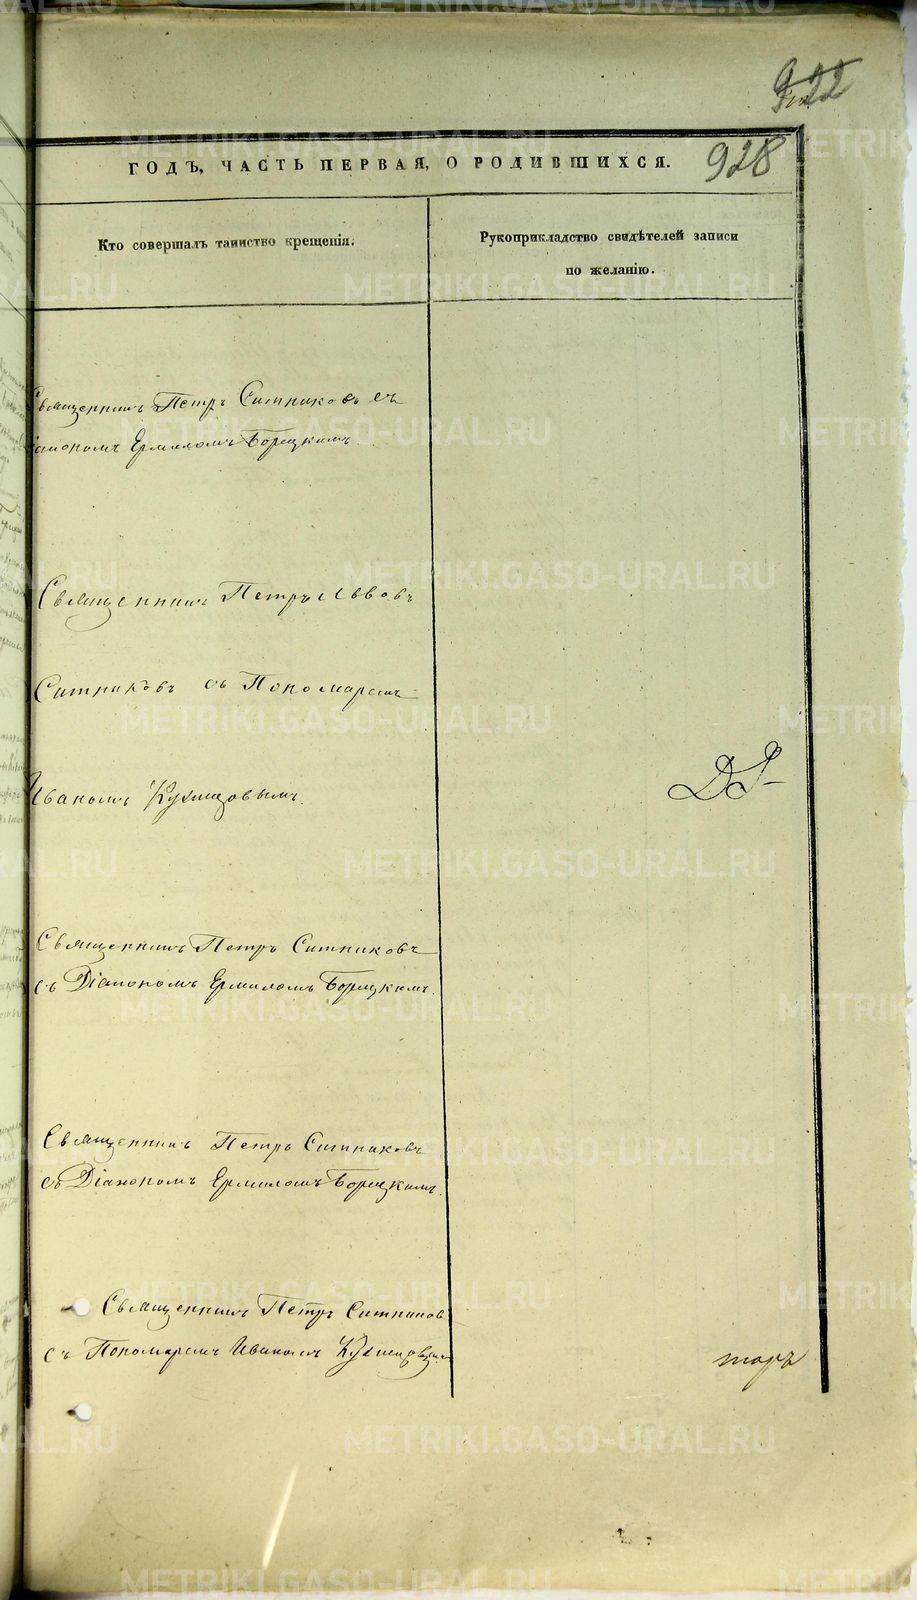 922
928
ГОДЪ, ЧАСТЬ ПЕРВАЯ, О РОДИВШИХСЯ.
Кто совершалъ таинство крещенія.
Рукоприкладство свидѣтелей записи
по желанію.
Священникъ Петръ Ситниковъ съ
Діакономъ Ермиломъ Борецкимъ.
Священникъ Петръ Львовъ
Ситниковъ съ Пономаремъ
Иваномъ Кузнецовымъ.
Священникъ Петръ Ситниковъ
съ Діакономъ Ермиломъ Борецкимъ.
Священникъ Петръ Ситниковъ
съ Діакономъ Ермиломъ Борецкимъ.
Священникъ Петръ Ситниковъ
съ Пономаремъ Иваномъ
торъ
METRIKI.GASO-URAL.RU